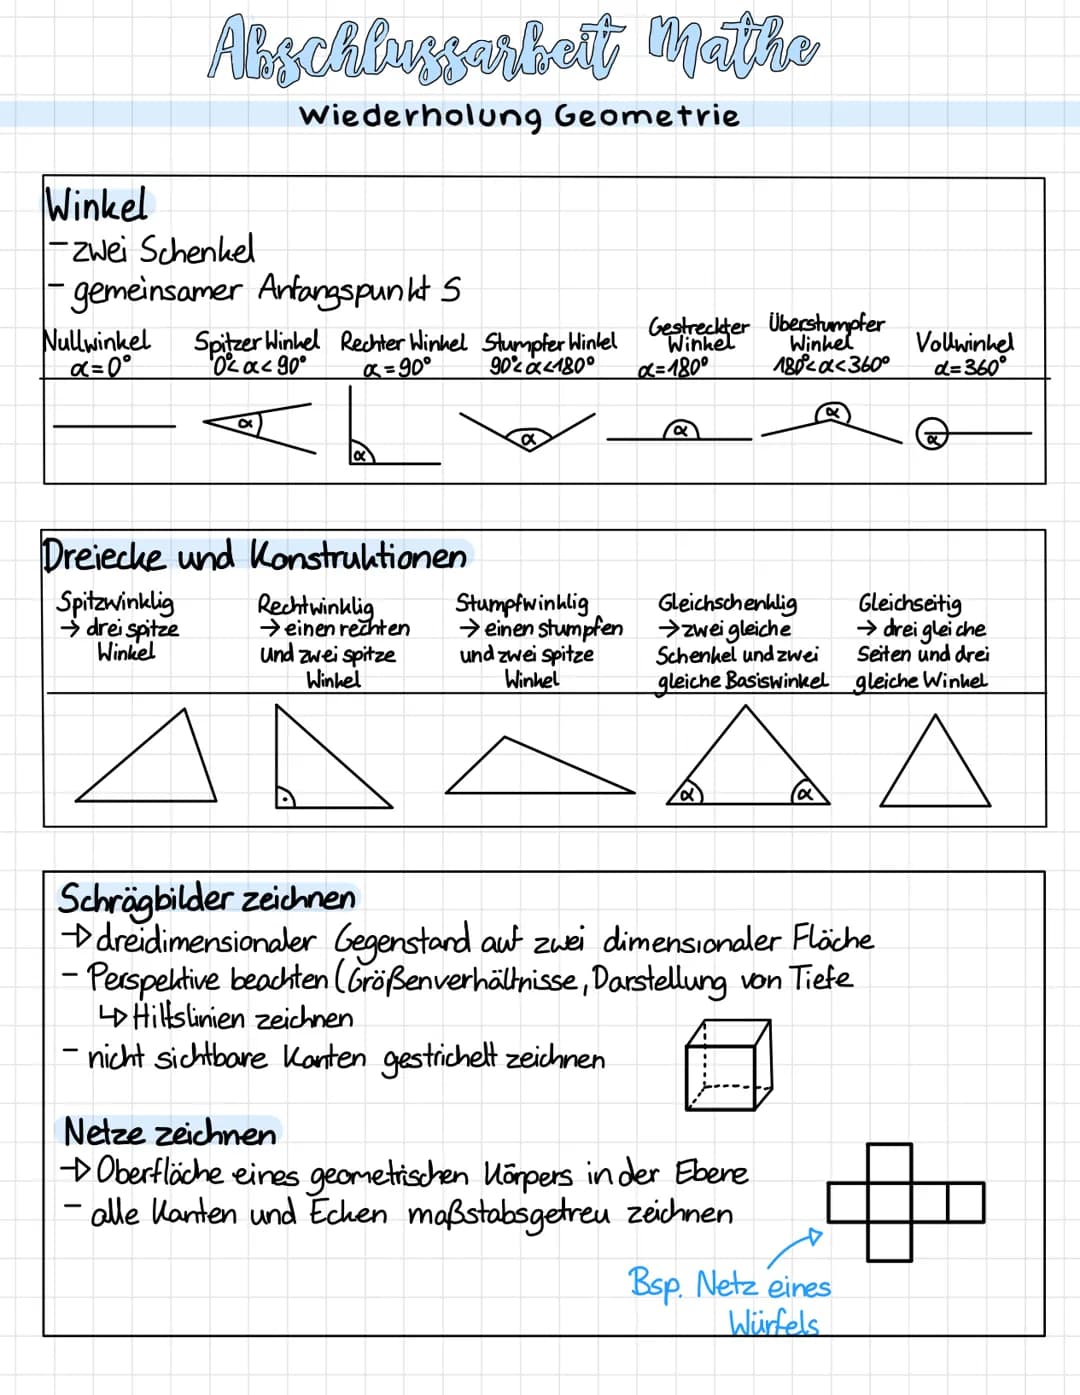 Abschlussarbeit Mathe
Wiederholung Geometrie
Winkel
- zwei Schenkel
- gemeinsamer Anfangspunkt S
Nullwinkel
α=0°
Spitzer Winkel
0°<α<90°
Rechter Winkel
α=90°
Stumpfer Winkel
90°<α<180°
Gestreckter
Winkel
α=180°
Überstumpfer
Winkel
180°<α<360°
Vollwinkel
α=360°
α
α
α
α
α
α
Dreiecke und Konstruktionen
Spitzwinklig
→ drei spitze
Winkel
Rechtwinklig
→ einen rechten
und zwei spitze
Winkel
Stumpfwinklig
→ einen stumpfen
und zwei spitze
Winkel
Gleichschenklig
→ zwei gleiche
Schenkel und zwei
gleiche Basiswinkel
Gleichseitig
→ drei gleiche
Seiten und drei
gleiche Winkel
α
α
Schrägbilder zeichnen
→ dreidimensionaler Gegenstand auf zwei dimensionaler Fläche
- Perspektive beachten (Größenverhältnisse, Darstellung von Tiefe
↳ Hilfslinien zeichnen
- nicht sichtbare Kanten gestrichelt zeichnen
Netze zeichnen
→ Oberfläche eines geometrischen Körpers in der Ebene
- alle Kanten und Ecken maßstabsgetreu zeichnen
Bsp. Netz eines
Würfels